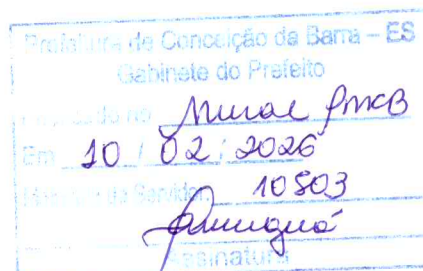 Prefeitura de Conceição da Barra – ES
Gabinete do Prefeito
no Mural PMCB
Em 10 / 02 / 2026
do Servidor: 10803
Assinatura